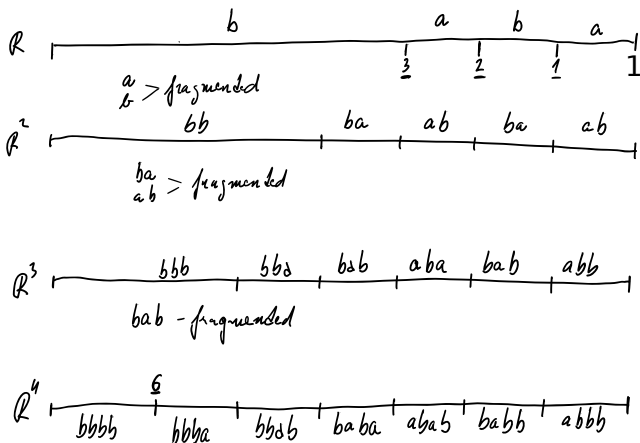 b a b a
R
3 2 1 1
a
b > fragmented
R² bb ba ab ba ab
ba
ab > fragmented
R³ bbb bba bab aba bab abb
bab - fragmented
6
R⁴
bbbb bbba bbab baba abab babb abbb